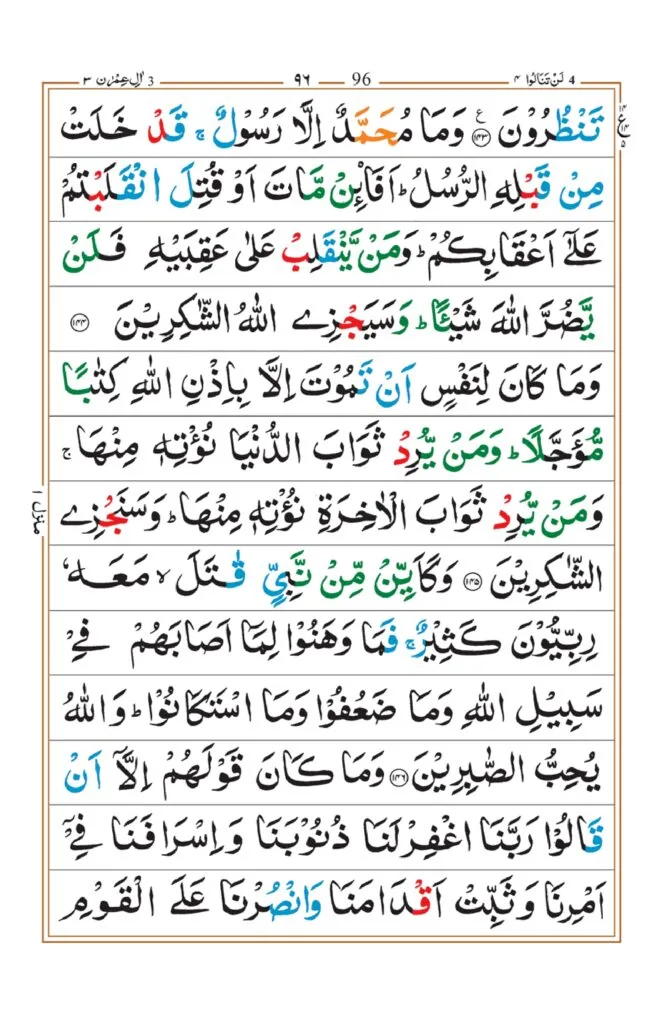 لَنْ تَنَالُوا ٤ 4 96 ٩٦ 3 اٰلِ عِمْرٰن ٣
تَنْظُرُوْنَ ۝١٤٣ وَمَا مُحَمَّدٌ اِلَّا رَسُوْلٌ ۚ قَدْ خَلَتْ
مِنْ قَبْلِهِ الرُّسُلُ ؕ اَفَا۟ئِنْ مَّاتَ اَوْ قُتِلَ انْقَلَبْتُمْ
عَلٰٓى اَعْقَابِكُمْ ؕ وَمَنْ يَّنْقَلِبْ عَلٰى عَقِبَيْهِ فَلَنْ
يَّضُرَّ اللّٰهَ شَيْـًٔا ؕ وَسَيَجْزِى اللّٰهُ الشّٰكِرِيْنَ ۝١٤٤
وَمَا كَانَ لِنَفْسٍ اَنْ تَمُوْتَ اِلَّا بِاِذْنِ اللّٰهِ كِتٰبًا
مُّؤَجَّلًا ؕ وَمَنْ يُّرِدْ ثَوَابَ الدُّنْيَا نُؤْتِهٖ مِنْهَا ۚ
وَمَنْ يُّرِدْ ثَوَابَ الْاٰخِرَةِ نُؤْتِهٖ مِنْهَا ؕ وَسَنَجْزِى
الشّٰكِرِيْنَ ۝١٤٥ وَكَاَيِّنْ مِّنْ نَّبِىٍّ قٰتَلَ ۙ مَعَهٗ
رِبِّيُّوْنَ كَثِيْرٌ ۚ فَمَا وَهَنُوْا لِمَاۤ اَصَابَهُمْ فِىْ
سَبِيْلِ اللّٰهِ وَمَا ضَعُفُوْا وَمَا اسْتَكَانُوْا ؕ وَاللّٰهُ
يُحِبُّ الصّٰبِرِيْنَ ۝١٤٦ وَمَا كَانَ قَوْلَهُمْ اِلَّاۤ اَنْ
قَالُوْا رَبَّنَا اغْفِرْ لَنَا ذُنُوْبَنَا وَاِسْرَافَنَا فِىْۤ
اَمْرِنَا وَثَبِّتْ اَقْدَامَنَا وَانْصُرْنَا عَلَى الْقَوْمِ
منزل ١
ع ١٤ ١٤ ٥